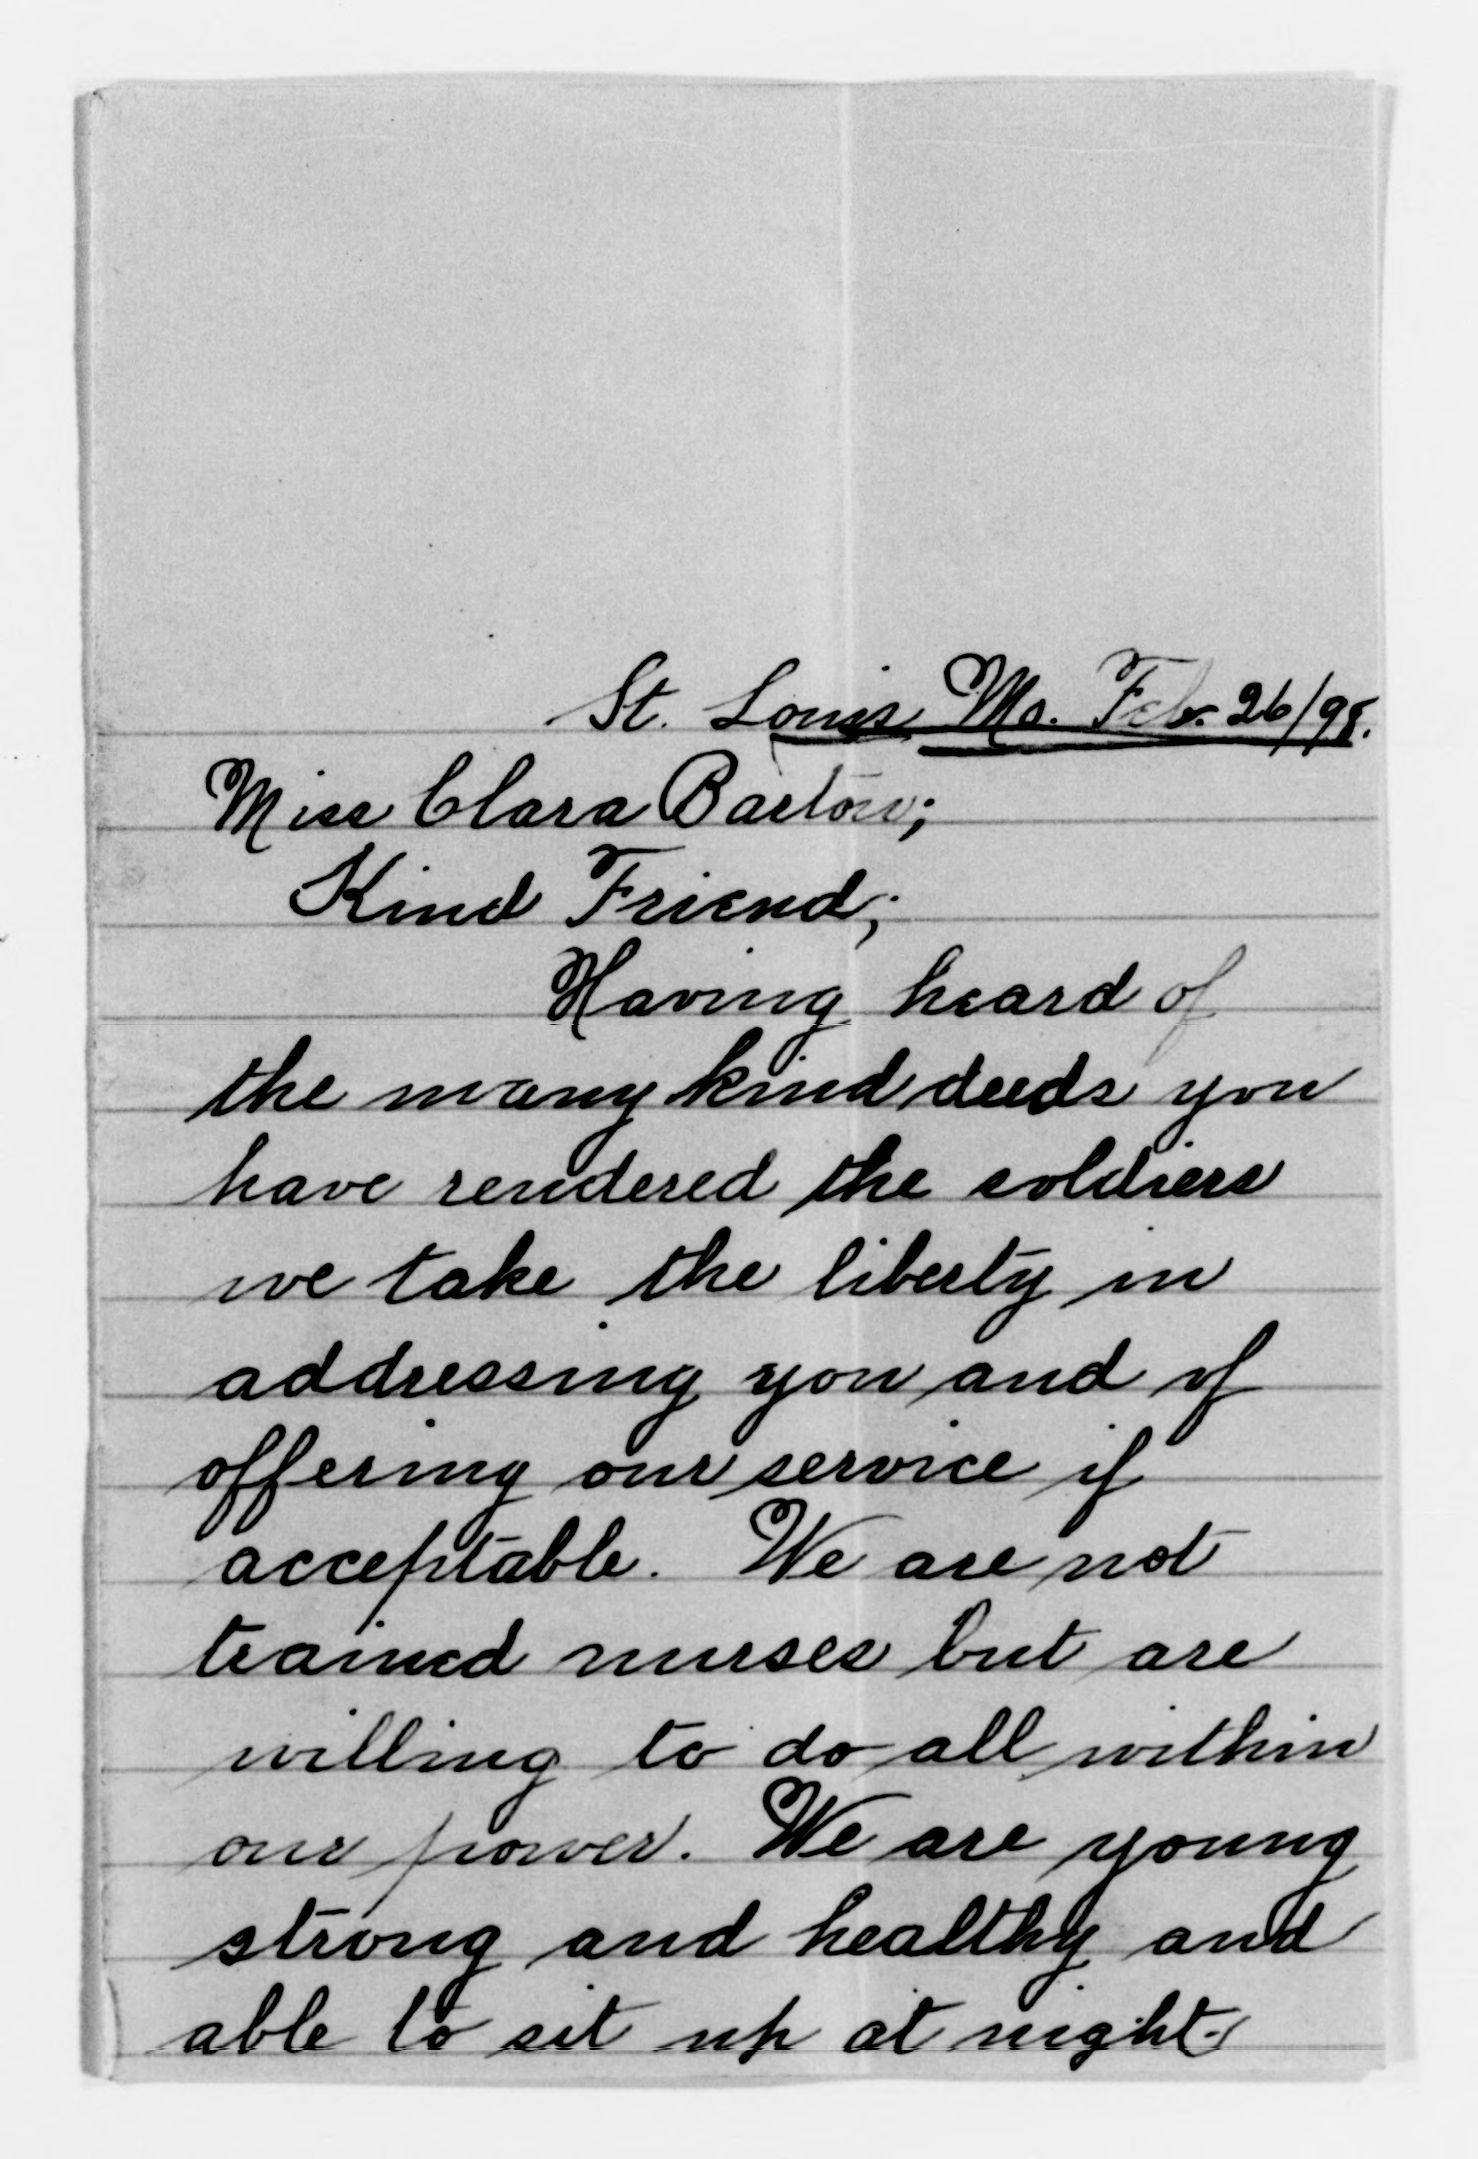 St. Louis, Mo. Feb. 26/98.
Miss Clara Barton;
Kind Friend;
Having heard of
the many kind deeds you
have rendered the soldiers
we take the liberty in
addressing you and of
offering our service if
acceptable. We are not
trained nurses but are
willing to do all within
our power. We are young
strong and healthy and
able to sit up at night.